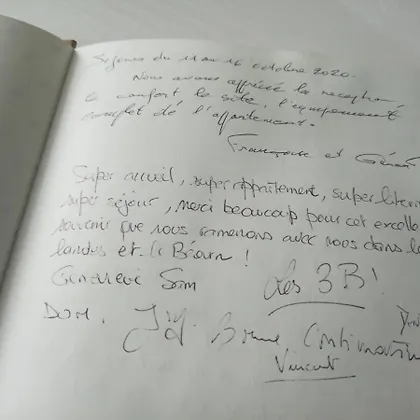 Séjour du 11 au 16 octobre 2020.
Nous avons apprécié la réception,
le confort le site, l'équipement
complet de l'appartement.
Françoise et Gérard
Super accueil, super appartement, super literie
super séjour, merci beaucoup pour cet excellent
souvenir que nous ramenons avec nous dans les
landes et le Béarn !
Geneviève Sam Les 3B!
Dom. JJ. Bonne Continuation
Vincent